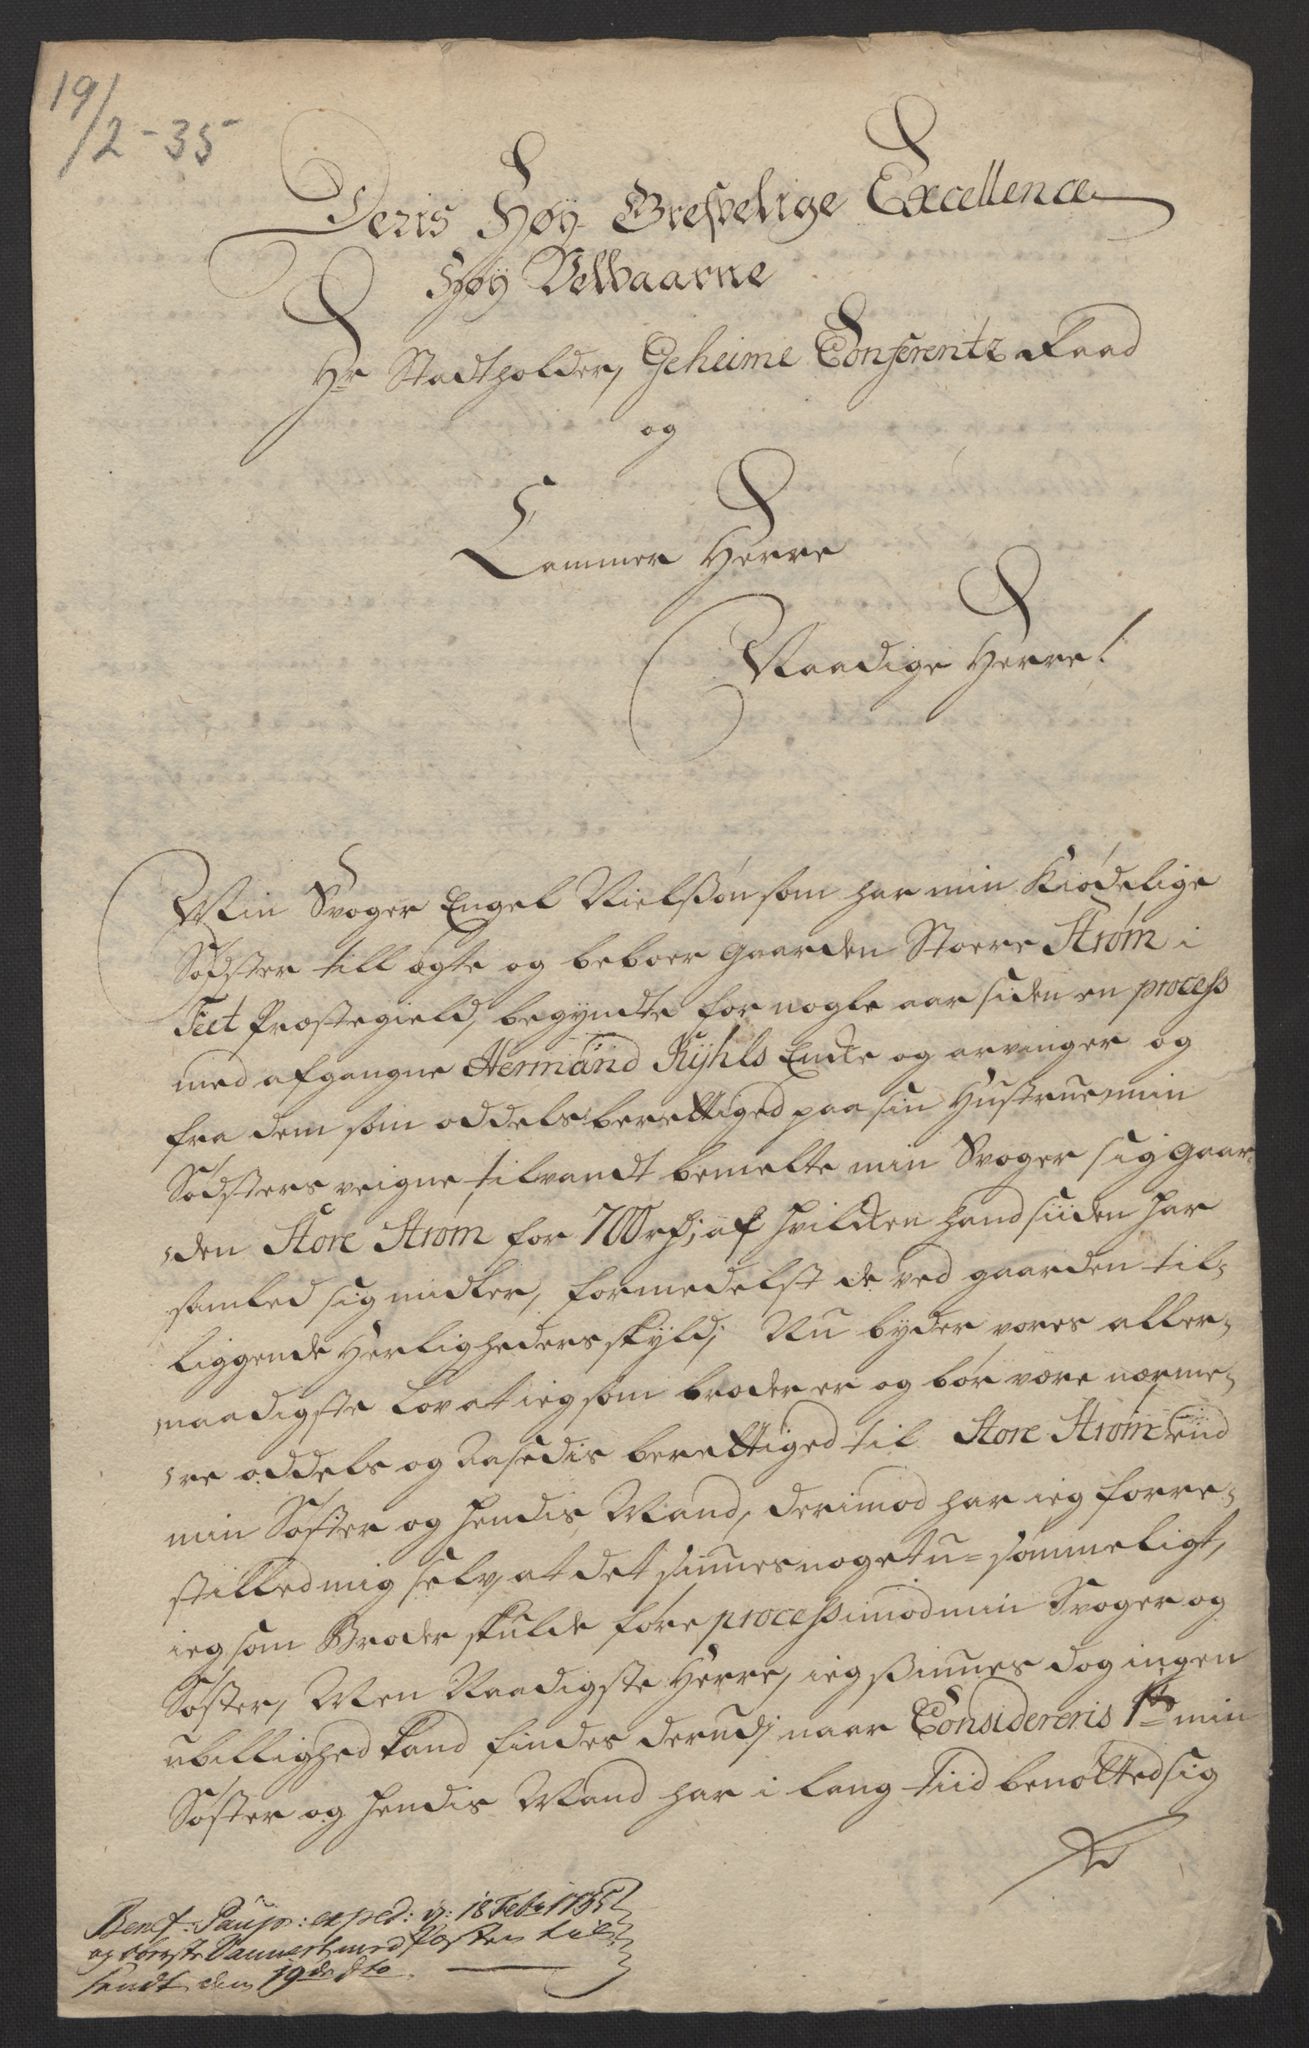 19/2-35
Deris Høy Grefvelige Excellence
Høy Velbaarne
Hr Stadtholder, Geheime Conferentz Raad
og
Cammer Herre
Naadige Herre!
Min Svoger Engel Nielssøn som har min Kiødelige
Søster till ægte og beboer gaarden Stoere Strøm i
Feet Præstegield, begyndte for nogle aar siden en process
med afgangne Hermand Ryhls Encke og arvinger og
fra dem som oddelsberettiged paa sin Hustrue min
Søsters veigne tilvandt bemelte min Svoger sig gaar-
den Store Strøm for 700 rh; af hvilcken hand siiden har
samled sig midler, formedelst de ved gaarden til-
liggende Herligheders skyld; Nu byder vores aller-
naadigste Lov at ieg som broder er og bør være nærme-
re oddels og Aasædis berettiged til Store Strøm end
min Søster og hendis Mand, derimod har ieg forre-
stilled mig selv, at det siunes noget u-sømmeligt,
ieg som Broder skulde føre process imod min Svoger og
Søster, Men Naadigste Herre, ieg siunes dog ingen
ubillighed kand findes derudj naar Considereris 1te min
Søster og hendis Mand har i lang tiid benøtted sig
Benef: Paup: exped: d: 18 Feb: 1735
og med Posten til
sendt den 19de dto.